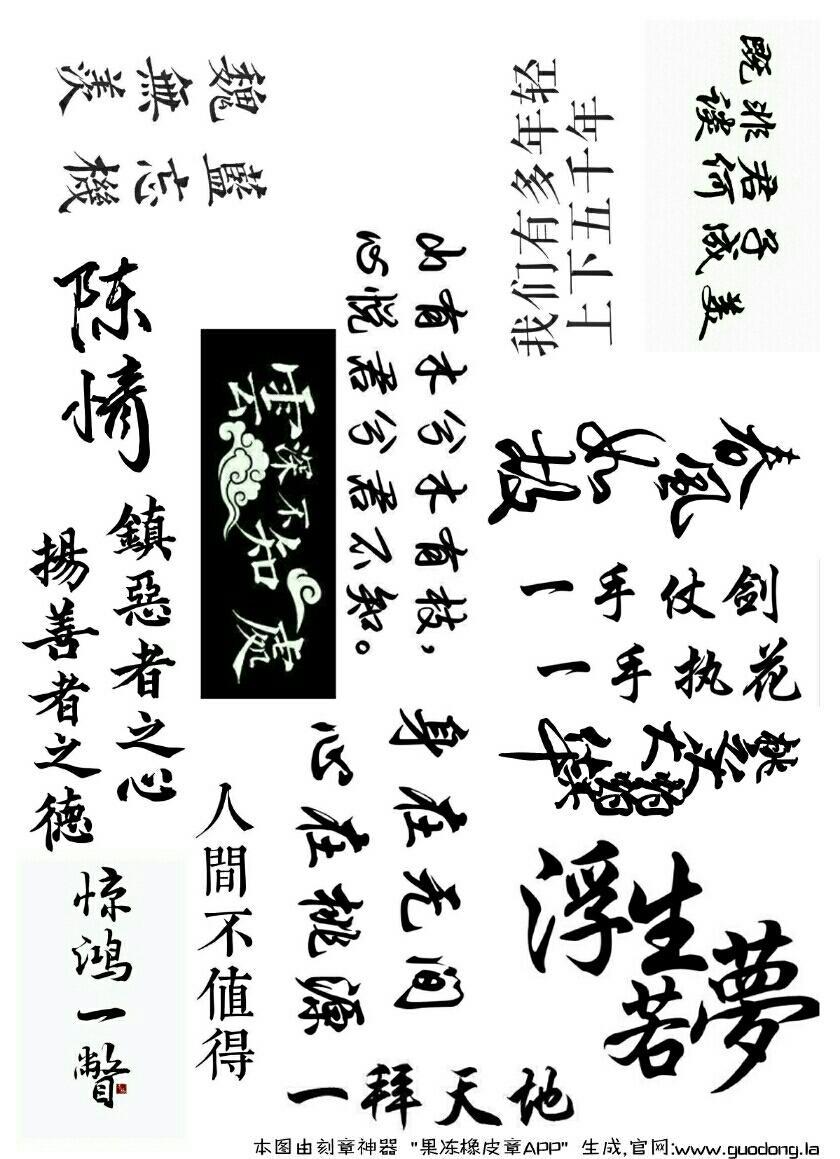 魏無羨
藍忘機
我们有多年轻
上下五千年
既非君子
谈何成美
陈情
雲深不知處
山有木兮木有枝，
心悦君兮君不知。
春風如
一手仗剑
一手执花
鎮惡者之心
揚善者之德
身在无间
心在桃源
人間不值得
惊鸿一瞥
浮生若夢
一拜天地
本图由刻章神器 "果冻橡皮章APP" 生成,官网:www.guodong.la